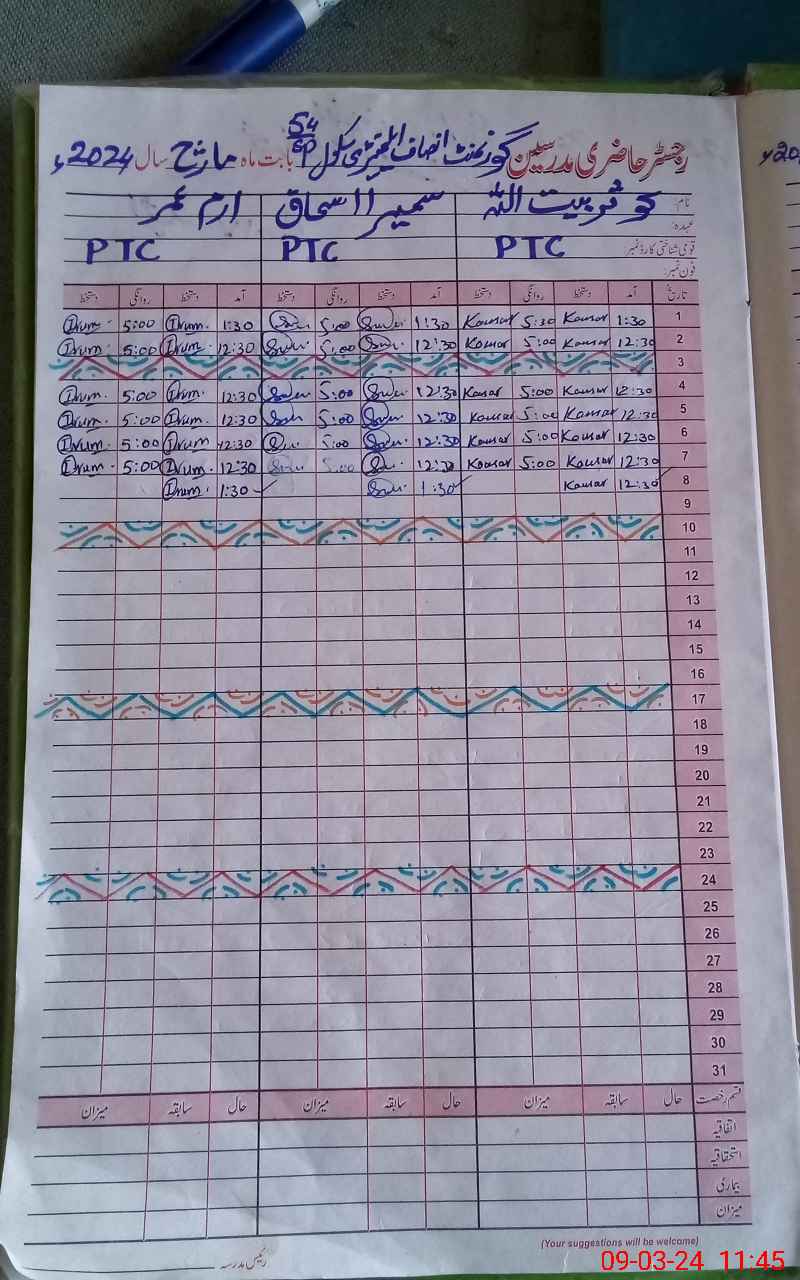 رجسٹر حاضری مدرسین گورنمنٹ انصاف ایلیمنٹری سکول 54/SP بابت ماہ مارچ سال 2024ء
نام: کوثر بیت اللہ سمیرا اسحاق ارم عمر
عہدہ:
قومی شناختی کارڈ نمبر PTC PTC PTC
فون نمبر:
تاریخ آمد دستخط روانگی دستخط آمد دستخط روانگی دستخط آمد دستخط روانگی دستخط
1 1:30 Kousar 5:30 Kousar 1:30 5:00 1:30 Irum 5:00 Irum
2 12:30 Kousar 5:00 Kousar 12:30 5:00 12:30 Irum 5:00 Irum
3
4 12:30 Kousar 5:00 Kousar 12:30 5:00 12:30 Irum 5:00 Irum
5 12:30 Kousar 5:00 Kousar 12:30 5:00 12:30 Irum 5:00 Irum
6 12:30 Kousar 5:00 Kousar 12:30 5:00 12:30 Irum 5:00 Irum
7 12:30 Kousar 5:00 Kousar 12:30 5:00 12:30 Irum 5:00 Irum
8 12:30 Kousar 1:30 1:30 Irum
9
10
11
12
13
14
15
16
17
18
19
20
21
22
23
24
25
26
27
28
29
30
31
قسم رخصت حال سابقہ میزان حال سابقہ میزان حال سابقہ میزان
اتفاقیہ
استحقاقیہ
بیماری
میزان
(Your suggestions will be welcome)
رئیس مدرسہ
09-03-24 11:45